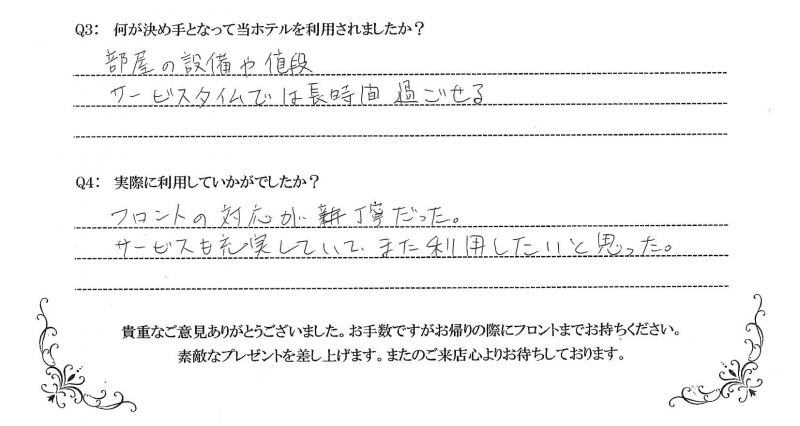 Q3： 何が決め手となって当ホテルを利用されましたか？
部屋の設備や値段
サービスタイムでは長時間過ごせる
Q4： 実際に利用していかがでしたか？
フロントの対応が 丁寧だった。
サービスも充実していて、また利用したいと思った。
貴重なご意見ありがとうございました。お手数ですがお帰りの際にフロントまでお持ちください。
素敵なプレゼントを差し上げます。またのご来店心よりお待ちしております。